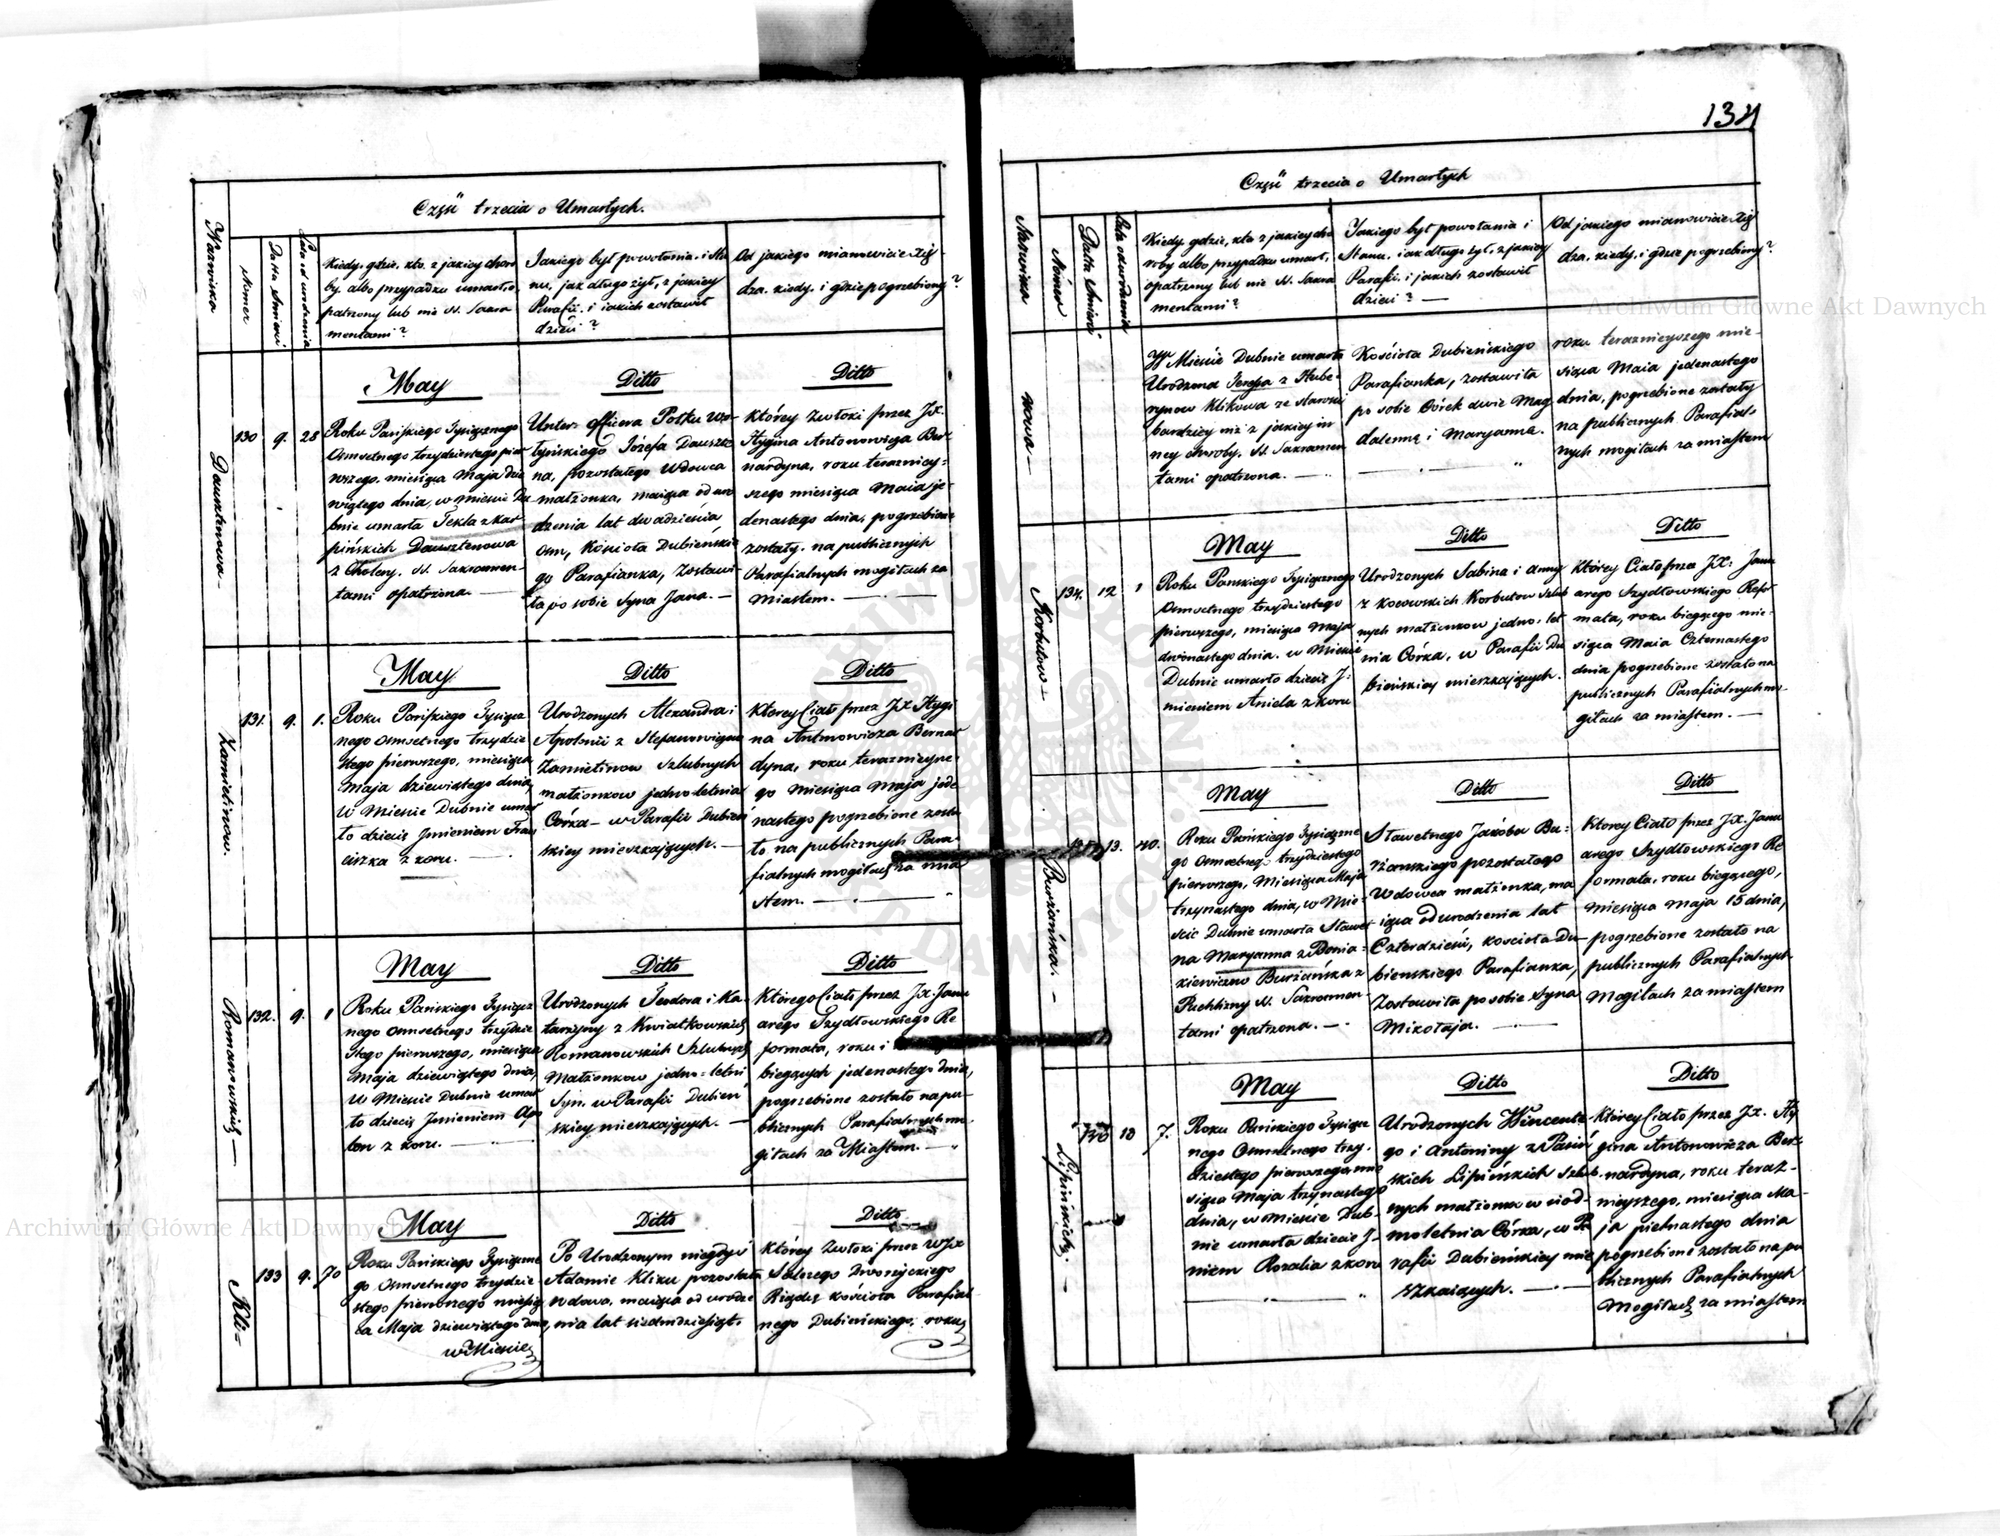 134
Część trzecia o Umarłych.
Nazwiska
Numer
Datta Smierci
Lata od urodzenia
Kiedy, gdzie, kto, z jakiey choro
by, albo przypadku umarł, o
patrzony lub nie SS. Sakra
mentami?
Jakiego był powołania i Sta
nu, jak długo żył, z jakiey
Parafii, i jakich zostawił
dzieci?
Od jakiego mianowicie Xię
dza, kiedy, i gdzie pogrzebiony?
Dausztenowa
130
9.
28
May
Roku Pańskiego Tysiącznego
Osmsetnego trzydziestego pier
wszego, miesiąca Maja dzie
wiątego dnia, w mieście Du
bnie umarła Tekla z Kar
pińskich Dausztenowa
z Cholery, SS. Sakramen
tami opatrzona.
Ditto
Unter Officera Połku Wo
łyńskiego Józefa Dauszte
na, pozostałego Wdowca
małżonka, maiąca od uro
dzenia lat dwadzieścia
osm, Kościoła Dubieńskie
go Parafianka, Zostawi
ła po sobie Syna Jana.
Ditto
Którey Zwłoki przez JX.
Hygina Antonowicza Ber
nardyna, roku terazniey
szego miesiąca Maia je
denastego dnia, pogrzebione
zostały, na publicznych
Parafialnych mogiłach za
Miastem.
Zamietinow.
131.
9.
1.
May
Roku Pańskiego Tysiącz
nego Osmsetnego trzydzie
stego pierwszego, miesiąca
Maja dziewiątego dnia,
W Mieście Dubnie umar
ło dziecię Jmieniem Fran
ciszka z koru.
Ditto
Urodzonych Alexandra i
Apolonii z Stefanowiczow
Zamietinow Szlubnych
małżonkow jednoletnia
Córka w Parafii Dubień
skiey mieszkaiących.
Ditto
Którey Ciało przez JX Hygi
na Antonowicza Bernar
dyna, roku teraznieysze
go miesiąca Maja jede
nastego pogrzebione zosta
ło na publicznych Para
fialnych mogiłach za mia
stem.
Romanowskich
132.
9.
1
May
Roku Pańskiego Tysiącz
nego Osmsetnego trzydzie
stego pierwszego, miesiąca
Maja dziewiątego dnia,
W Mieście Dubnie umar
ło dziecię Jmieniem An
ton z koru.
Ditto
Urodzonych Teodora i Ka
tarzyny z Kwiatkowskich
Romanowskich Szlubnych
Małżonkow jedno-letni
Syn, w Parafii Dubień
skiey mieszkających.
Ditto
Którego Ciało przez JX. Janu
arego Szydłowskiego Re
formata, roku i
bieżących jedenastego dnia,
pogrzebione zostało na pu
blicznych Parafialnych mo
giłach za Miastem.
Kli-
133
9.
70
May
Roku Pańskiego Tysiączne
go Osmsetnego trzydzie
stego pierwszego miesią
ca Maja dziewiątego dnia,
w Mieście
Ditto
Po Urodzonym niegdyś
Adamie Kliku pozostała
Wdowa, maiąca od urodze
nia lat siedmdziesiąt.
Ditto
Którey Zwłoki przez WJX
Dworzyckiego
Rządcę kościoła Parafial
nego Dubieńskiego, roku
Część trzecia o Umarłych
Nazwiska
Numer
Datta Smierci
Lata od urodzenia
Kiedy, gdzie, kto z jakiey cho
roby albo przypadku umarł,
opatrzony lub nie SS. Sakra
mentami?
Jakiego był powołania i
Stanu, jak długo żył, z jakiey
Parafii, i jakich zostawił
dzieci?
Od jakiego mianowicie Xię
dza, kiedy, i gdzie pogrzebiony?
kowa
W Mieście Dubnie umarła
Urodzona Teressa z Hube
rynow Klikowa ze starości
bardziey niż z jakiey in
ney choroby, SS. Sakramen
tami opatrzona.
Kościoła Dubieńskiego
Parafianka, zostawiła
po sobie Córek dwie Mag
dalennę i Maryanne.
roku teraznieyszego mie
siąca Maia jedenastego
dnia, pogrzebione zostały
na publicznych Parafial
nych mogiłach za miastem
Korbutow
134.
12
1
May
Roku Pańskiego Tysiącznego
Osmsetnego trzydziestego
pierwszego, miesiąca Maja
dwónastego dnia, w Mieście
Dubnie umarło dziecię J:
mieniem Aniela z koru
Ditto
Urodzonych Sabina i Anny
z Kocowskich Korbutow Szlub
nych małżonkow jedno-let
nia Córka, w Parafii Du
bieńskiey mieszkających.
Ditto
Którey Ciało przez JX: Janu
arego Szydłowskiego Refor
mata, roku bieżącego mie
siąca Maia Czternastego
dnia pogrzebione zostało na
publicznych Parafialnych mo
giłach za miastem.
Burżańska.
13.
40.
May
Roku Pańskiego Tysiączne
go Osmsetneg. trzydziestego
pierwszego, Miesiąca Maja
trzynastego dnia, w Mie
ście Dubnie umarła Sławet
na Maryanna z Bonia
kiewiczow Burżańska z
Puchliny SS. Sakramen
tami opatrzona.
Ditto
Sławetnego Jakóba Bu
rżanskiego pozostałego
Wdowca małżonka, ma
iąca od urodzenia lat
Czterdzieści, kościoła Du
bienskiego Parafianka,
Zostawiła po sobie Syna
Mikołaja.
Ditto
Którey Ciało przez JX. Janu
arego Szydłowskiego Re
formata, roku bieżącego,
miesiąca Maja 15 dnia,
pogrzebione zostało na
publicznych Parafialnych
Mogiłach za miastem
Lipińskich.
13
7.
May
Roku Pańskiego Tysiącz
nego Osmsetnego trzy
dziestego pierwszego mie
siąca Maja trzynastego
dnia, w mieście Dub
nie umarła dziecie J
mieniem Rozalia z koru
Ditto
Urodzonych Wincente
go i Antoniny z
skich Lipińskich Szlub
nych małżonkow sied
moletnia Córka, w Pa
rafii Dubieńskiey mie
szkaiących.
Ditto
Którey Ciało przez JX. Hy
gina Antonowicza Ber
nardyna, roku teraz
nieyszego, miesiąca Ma
ja pietnastego dnia
pogrzebione zostało na pu
blicznych Parafialnych
Mogiłach za miastem
Archiwum Główne Akt Dawnych
Archiwum Główne Akt Dawnych